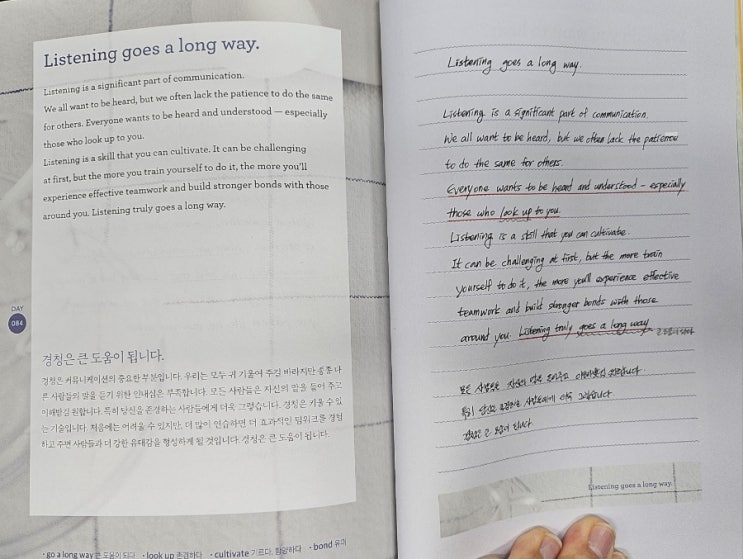 Listening goes a long way.
Listening is a significant part of communication.
We all want to be heard, but we often lack the patience to do the same
for others. Everyone wants to be heard and understood — especially
those who look up to you.
Listening is a skill that you can cultivate. It can be challenging
at first, but the more you train yourself to do it, the more you'll
experience effective teamwork and build stronger bonds with those
around you. Listening truly goes a long way.
DAY
084
경청은 큰 도움이 됩니다.
경청은 커뮤니케이션의 중요한 부분입니다. 우리는 모두 귀 기울여 주길 바라지만 종종 다
른 사람들의 말을 듣기 위한 인내심은 부족합니다. 모든 사람들은 자신의 말을 들어 주고
이해받길 원합니다. 특히 당신을 존경하는 사람들에게 더욱 그렇습니다. 경청은 키울 수 있
는 기술입니다. 처음에는 어려울 수 있지만, 더 많이 연습하면 더 효과적인 팀워크를 경험
하고 주변 사람들과 더 강한 유대감을 형성하게 될 것입니다. 경청은 큰 도움이 됩니다.
• go a long way 큰 도움이 되다 • look up 존경하다 • cultivate 기르다, 함양하다 • bond 유대
Listening goes a long way.
Listening is a significant part of communication.
We all want to be heard, but we often lack the patience
to do the same for others.
Everyone wants to be heard and understood - especially
those who look up to you.
Listening is a skill that you can cultivate.
It can be challenging at first, but the more train
yourself to do it, the more you'll experience effective
teamwork and build stronger bonds with those
around you. Listening truly goes a long way
모든 사람들은 자신의 말을 들어주고 이해받길 원합니다.
특히 당신을 존경하는 사람들에게 더욱 그렇습니다
경청은 큰 도움이 됩니다.
Listening goes a long way.